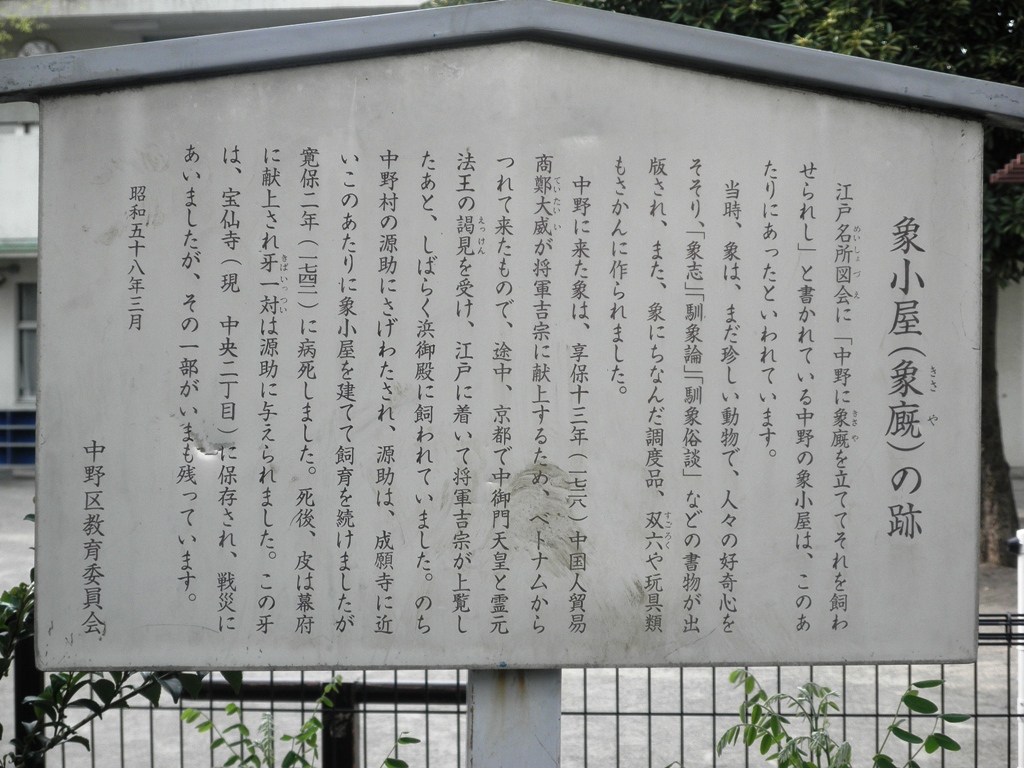 象小屋（象厩）の跡
江戸名所図会に「中野に象厩を立ててそれを飼わ
せられし」と書かれている中野の象小屋は、このあ
たりにあったといわれています。
当時、象は、まだ珍しい動物で、人々の好奇心を
そそり、「象志」「馴象論」「馴象俗談」などの書物が出
版され、また、象にちなんだ調度品、双六や玩具類
もさかんに作られました。
中野に来た象は、享保十三年（一七二八）中国人貿易
商鄭大威が将軍吉宗に献上するため、ベトナムから
つれて来たもので、途中、京都で中御門天皇と霊元
法王の謁見を受け、江戸に着いて将軍吉宗が上覧し
たあと、しばらく浜御殿に飼われていました。のち
中野村の源助にさげわたされ、源助は、成願寺に近
いこのあたりに象小屋を建てて飼育を続けましたが
寛保二年（一七四二）に病死しました。死後、皮は幕府
に献上され牙一対は源助に与えられました。この牙
は、宝仙寺（現　中央二丁目）に保存され、戦災に
あいましたが、その一部がいまも残っています。
昭和五十八年三月
中野区教育委員会